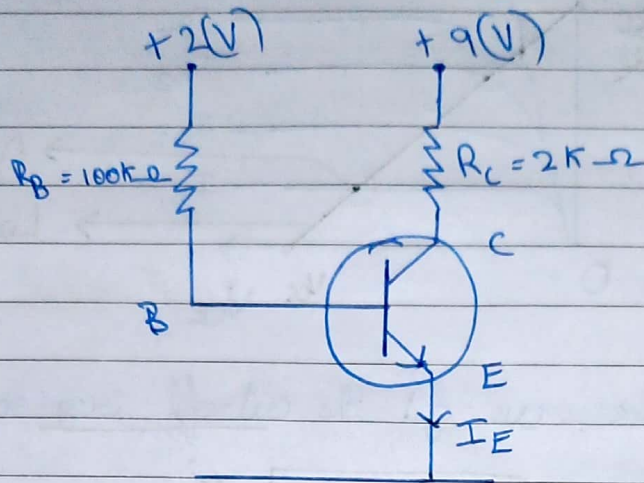 +2(V)
+9(V)
R_B = 100KΩ
R_C = 2KΩ
C
B
E
I_E